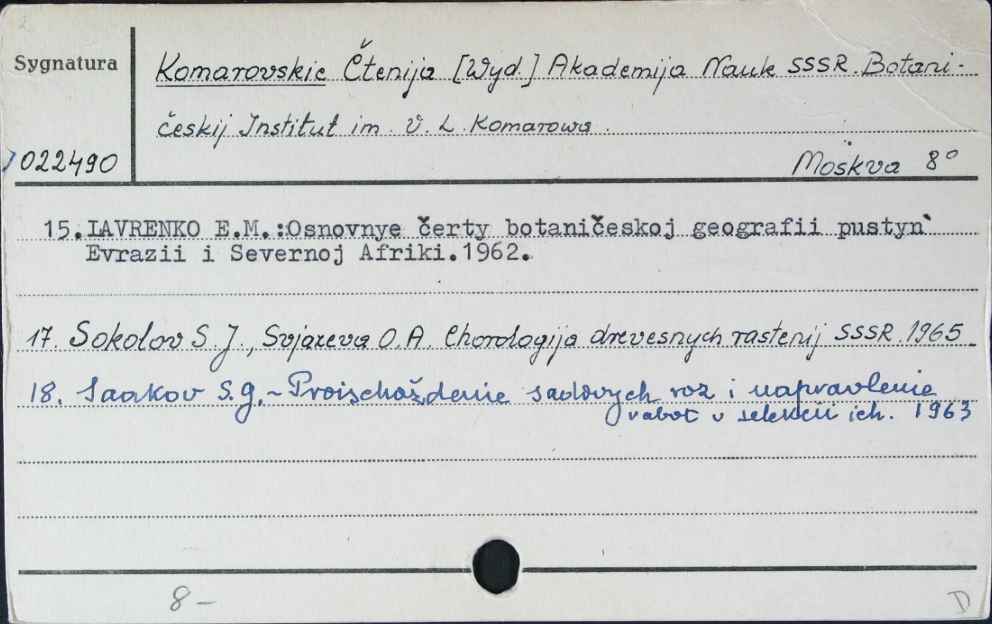 Sygnatura
Komarovskie Čtenija [Wyd.] Akademija Nauk SSSR. Botani-
českij Institut im. V. L. Komarowa.
022490
Moskva 8°
15. IAVRENKO E.M.:Osnovnye čerty botaničeskoj geografii pustyn`
Evrazii i Severnoj Afriki.1962.
17. Sokolov S. J., Svjazeva O. A. Chorologija drevesnych rastenij SSSR. 1965
18. Saakov S. g. ~ Proischoždenie sadovych roz i napravlenie
rabot v selekcii ich. 1963
8 –
D